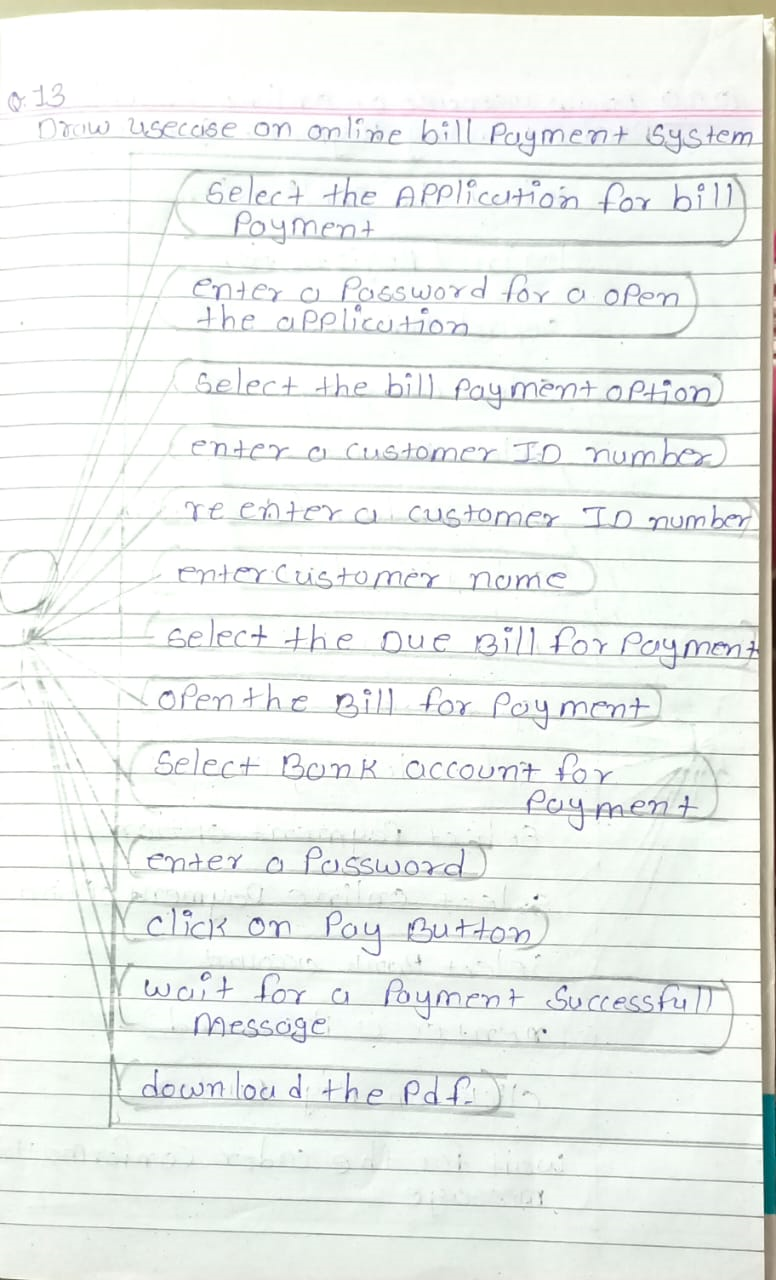 Q.13
Draw usecase on online bill Payment System
Select the Application for bill
Payment
enter a Password for a open
the application
Select the bill payment option
enter a customer ID number
re enter a customer ID number
enter customer name
Select the Due Bill for Payment
open the Bill for Payment
Select Bank account for
Payment
enter a Password
click on Pay Button
wait for a Payment Successfull
Message
download the Pdf.